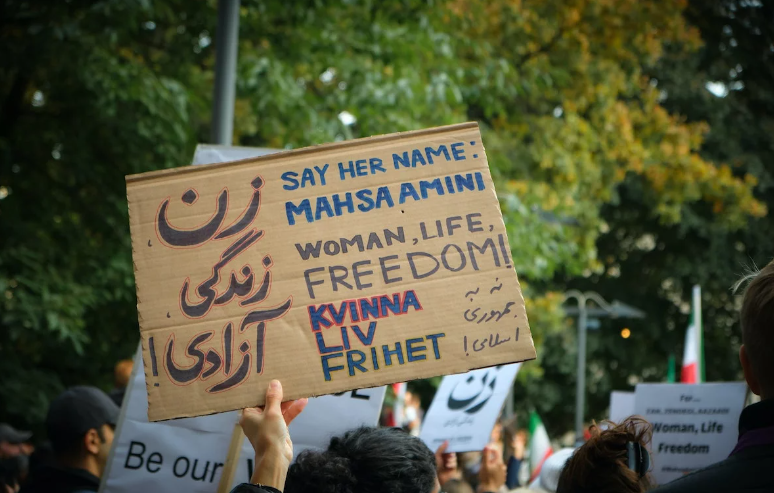 زن،
زندگی،
آزادی!
SAY HER NAME:
MAHSA AMINI
WOMAN, LIFE,
FREEDOM!
KVINNA
LIV
FRIHET
نه به
جمهوری
اسلامی!
Be our
زن
For...
Woman, Life
Freedom